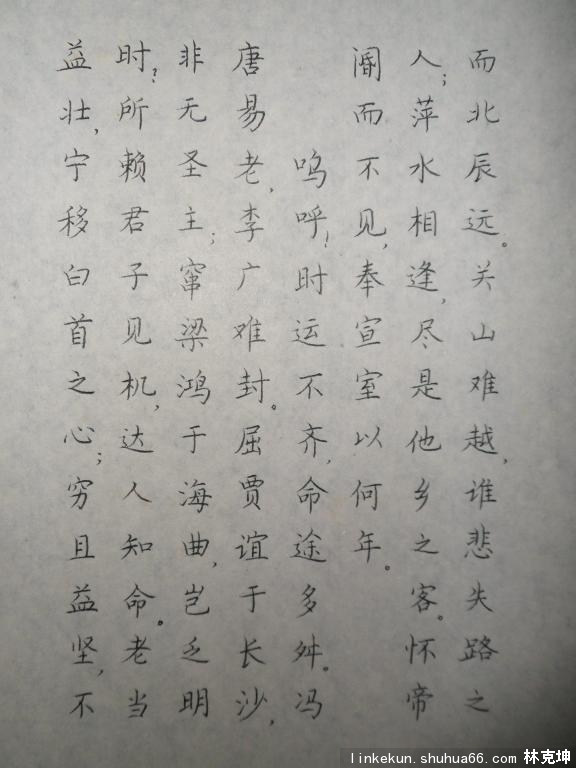 而北辰远。关山难越，谁悲失路之
人；萍水相逢，尽是他乡之客。怀帝
阍而不见，奉宣室以何年。
呜呼？时运不齐，命途多舛。冯
唐易老，李广难封。屈贾谊于长沙，
非无圣主；窜梁鸿于海曲，岂乏明
时？所赖君子见机，达人知命。老当
益壮，宁移白首之心；穷且益坚，不
linkekun.shuhua66.com 林克坤